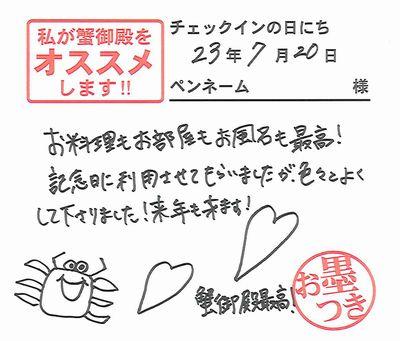 私が蟹御殿を
オススメ
します!!
チェックインの日にち
23年7月20日
ペンネーム 様
お料理もお部屋もお風呂も最高!
記念日に利用させてもらいましたが、色々とよく
して下さりました!来年も来ます!
蟹御殿最高!
お墨つき